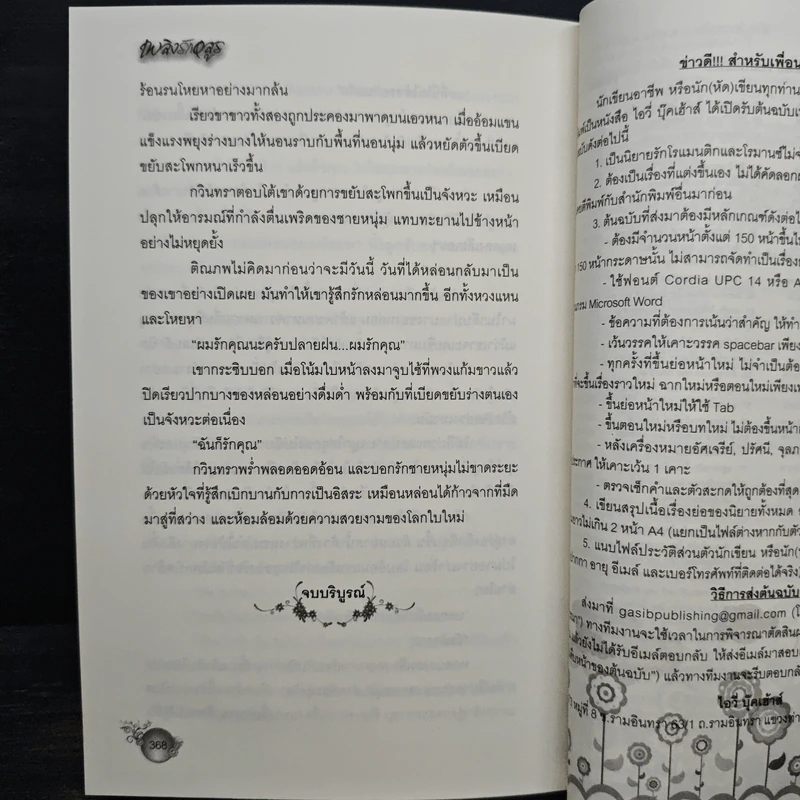 เพลิงรักอสูร
ร้อนรนโหยหาอย่างมากล้น
เรียวขาขาวทั้งสองถูกประคองมาพาดบนเอวหนา เมื่ออ้อมแขน
แข็งแรงพยุงร่างบางให้นอนราบกับพื้นที่นอนนุ่ม แล้วหยัดตัวขึ้นเบียด
ขยับสะโพกหนาเร็วขึ้น
กวินทราตอบโต้เขาด้วยการขยับสะโพกขึ้นเป็นจังหวะ เหมือน
ปลุกให้อารมณ์ที่กำลังตื่นเพริดของชายหนุ่ม แทบทะยานไปข้างหน้า
อย่างไม่หยุดยั้ง
ติณภพไม่คิดมาก่อนว่าจะมีวันนี้ วันที่ได้หล่อนกลับมาเป็น
ของเขาอย่างเปิดเผย มันทำให้เขารู้สึกรักหล่อนมากขึ้น อีกทั้งหวงแหน
และโหยหา
“ผมรักคุณนะครับปลายฝน...ผมรักคุณ”
เขากระซิบบอก เมื่อโน้มใบหน้าลงมาจูบไซ้ที่พวงแก้มขาวแล้ว
ปิดเรียวปากบางของหล่อนอย่างดื่มด่ำ พร้อมกับที่เบียดขยับร่างตนเอง
เป็นจังหวะต่อเนื่อง
“ฉันก็รักคุณ”
กวินทราพร่ำพลอดออดอ้อน และบอกรักชายหนุ่มไม่ขาดระยะ
ด้วยหัวใจที่รู้สึกเบิกบานกับการเป็นอิสระ เหมือนหล่อนได้ก้าวจากที่มืด
มาสู่ที่สว่าง และห้อมล้อมด้วยความสวยงามของโลกใบใหม่
จบบริบูรณ์
368
ข่าวดี!!! สำหรับเพื่อน
นักเขียนอาชีพ หรือนัก(หัด)เขียนทุกท่าน
เป็นหนังสือ ไอวี่ บุ๊คเฮ้าส์ ได้เปิดรับต้นฉบับ
ดังต่อไปนี้
1. เป็นนิยายรักโรแมนติกและโรมานซ์
2. ต้องเป็นเรื่องที่แต่งขึ้นเอง ไม่ได้คัดลอก
ตีพิมพ์กับสำนักพิมพ์อื่นมาก่อน
3. ต้นฉบับที่ส่งมาต้องมีหลักเกณฑ์ดังต่อ
- ต้องมีจำนวนหน้าตั้งแต่ 150 หน้าขึ้น
150 หน้ากระดาษนั้น ไม่สามารถจัดทำเป็นเรื่อง
- ใช้ฟอนต์ Cordia UPC 14 หรือ
Microsoft Word
- ข้อความที่ต้องการเน้นว่าสำคัญ ให้ทำ
- เว้นวรรคให้เคาะวรรค spacebar เพียง
- ทุกครั้งที่ขึ้นย่อหน้าใหม่ ไม่จำเป็นต้อง
จะขึ้นเรื่องราวใหม่ ฉากใหม่หรือตอนใหม่เพียง
- ขึ้นย่อหน้าใหม่ให้ใช้ Tab
- ขึ้นตอนใหม่หรือบทใหม่ ไม่ต้องขึ้นหน้า
- หลังเครื่องหมายอัศเจรีย์, ปรัศนี,
ให้เคาะเว้น 1 เคาะ
- ตรวจเช็กคำและตัวสะกดให้ถูกต้องที่สุด
4. เขียนสรุปเนื้อเรื่องย่อของนิยายทั้งหมด
ไม่เกิน 2 หน้า A4 (แยกเป็นไฟล์ต่างหากกับ
5. แนบไฟล์ประวัติส่วนตัวนักเขียน หรือนัก
อายุ อีเมล์ และเบอร์โทรศัพท์ที่ติดต่อได้จริง)
วิธีการส่งต้นฉบับ
ส่งมาที่ gasibpublishing@gmail.com
ทางทีมงานจะใช้เวลาในการพิจารณาตัดสิน
แล้วยังไม่ได้รับอีเมล์ตอบกลับ ให้ส่งอีเมล์มาสอบ
หน้าของต้นฉบับ") แล้วทางทีมงานจะรีบตอบ
ไอวี่ บุ๊คเฮ้าส์
หมู่ที่ 8 ซ.รามอินทรา 63/1 ถ.รามอินทรา แขวง